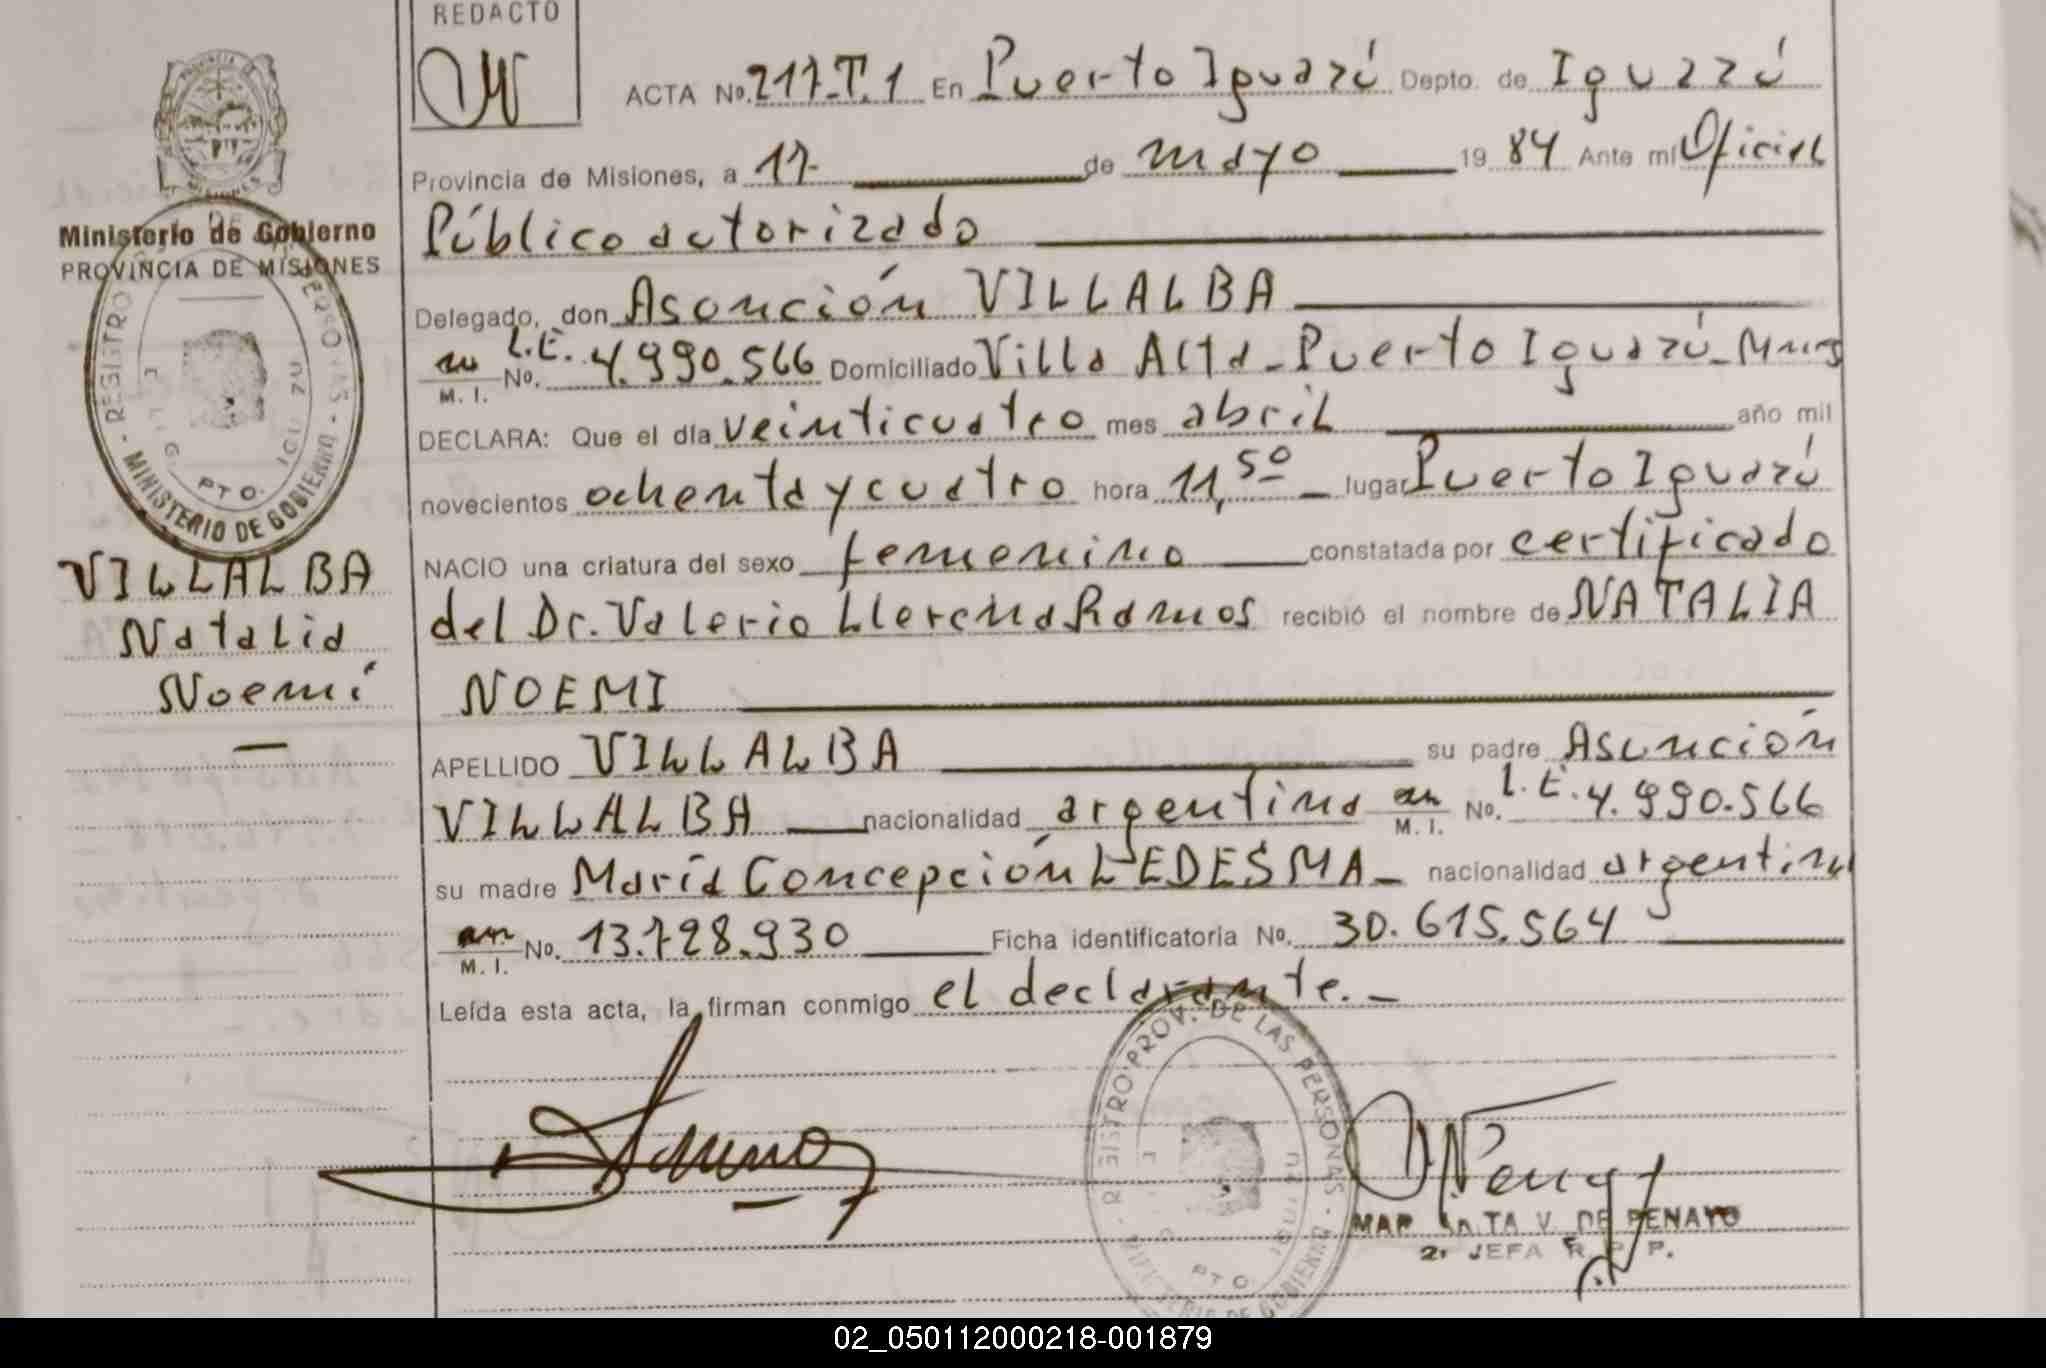 REDACTO
ACTA No. 217.T.1 En Puerto Iguazú Depto. de Iguazú
Provincia de Misiones, a 17 de mayo 1984 Ante mí Oficial
Público autorizado
Delegado, don Asunción VILLALBA
M. I. No. L.E. 4.990.566 Domiciliado Villa Alta - Puerto Iguazú - Mnes
DECLARA: Que el día veinticuatro mes abril año mil
novecientos ochenta y cuatro hora 11,50 lugar Puerto Iguazú
NACIO una criatura del sexo femenino constatada por certificado
del Dr. Valerio Llerena Ramos recibió el nombre de NATALIA
NOEMI
APELLIDO VILLALBA su padre Asunción
VILLALBA nacionalidad argentina M. I. No. L.E. 4.990.566
su madre María Concepción LEDESMA - nacionalidad argentina
M. I. No. 13.728.930 Ficha identificatoria No. 30.615.564
Leída esta acta, la firman conmigo el declarante. -
PROVINCIA DE MISIONES
Ministerio de Gobierno
PROVINCIA DE MISIONES
MINISTERIO DE GOBIERNO
PTO.
VILLALBA
Natalia
Noemí
REGISTRO PROV. DE LAS PERSONAS
PTO
V. DE PENAYO
2ª JEFA R. P. P.
02_050112000218-001879